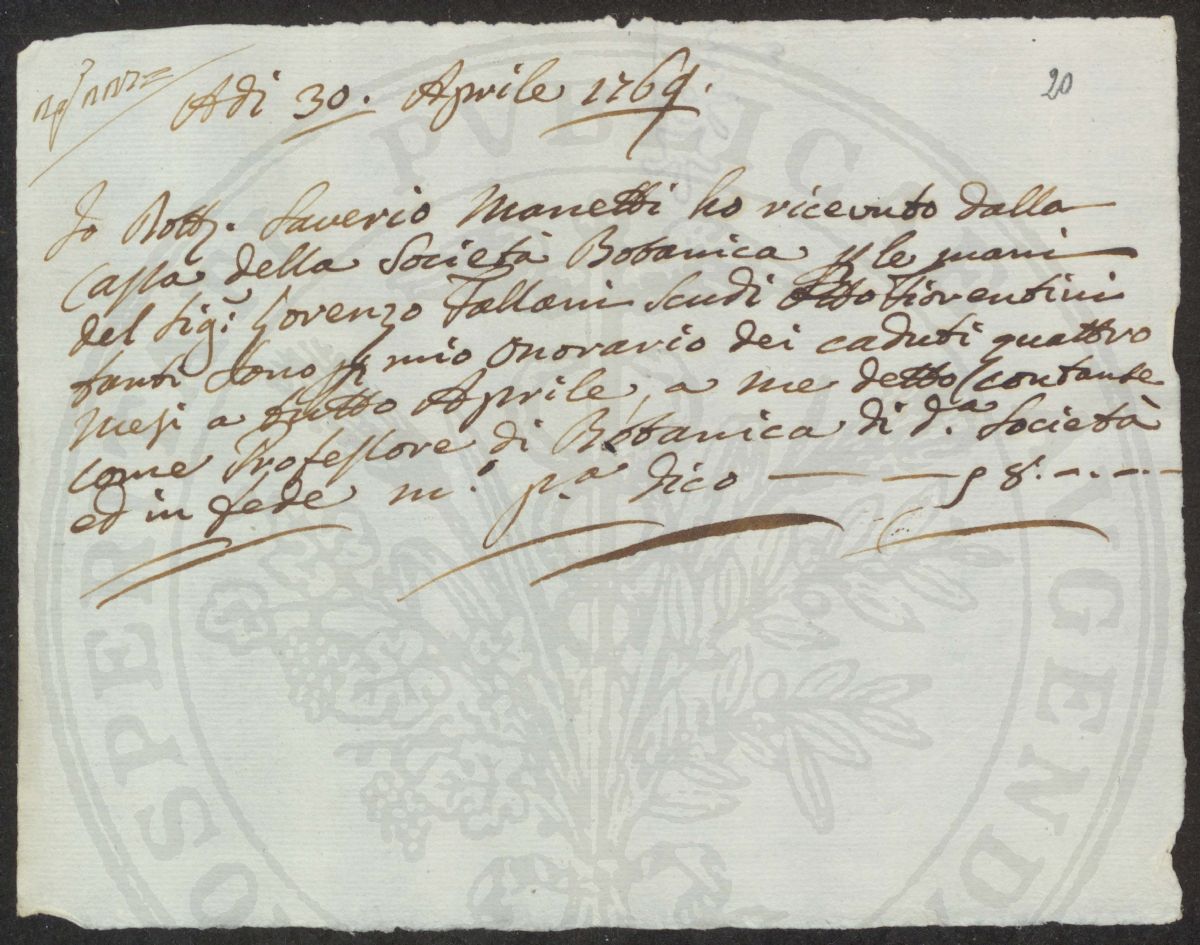 20
Adi 30. Aprile 1769.
Io Dottr. Saverio Manetti ho ricevuto dalla
Cassa della Società Botanica p le mani
del Sigr. Lorenzo Tallani scudi Otto Fiorentini
tanti sono p mio onorario dei caduti quattro
Mesi a tutto Aprile, a me detto contante
come Professore di Botanica di da. Società
ed in fede m.o p.a dico — — 8. —. —. —
PUBLICAE